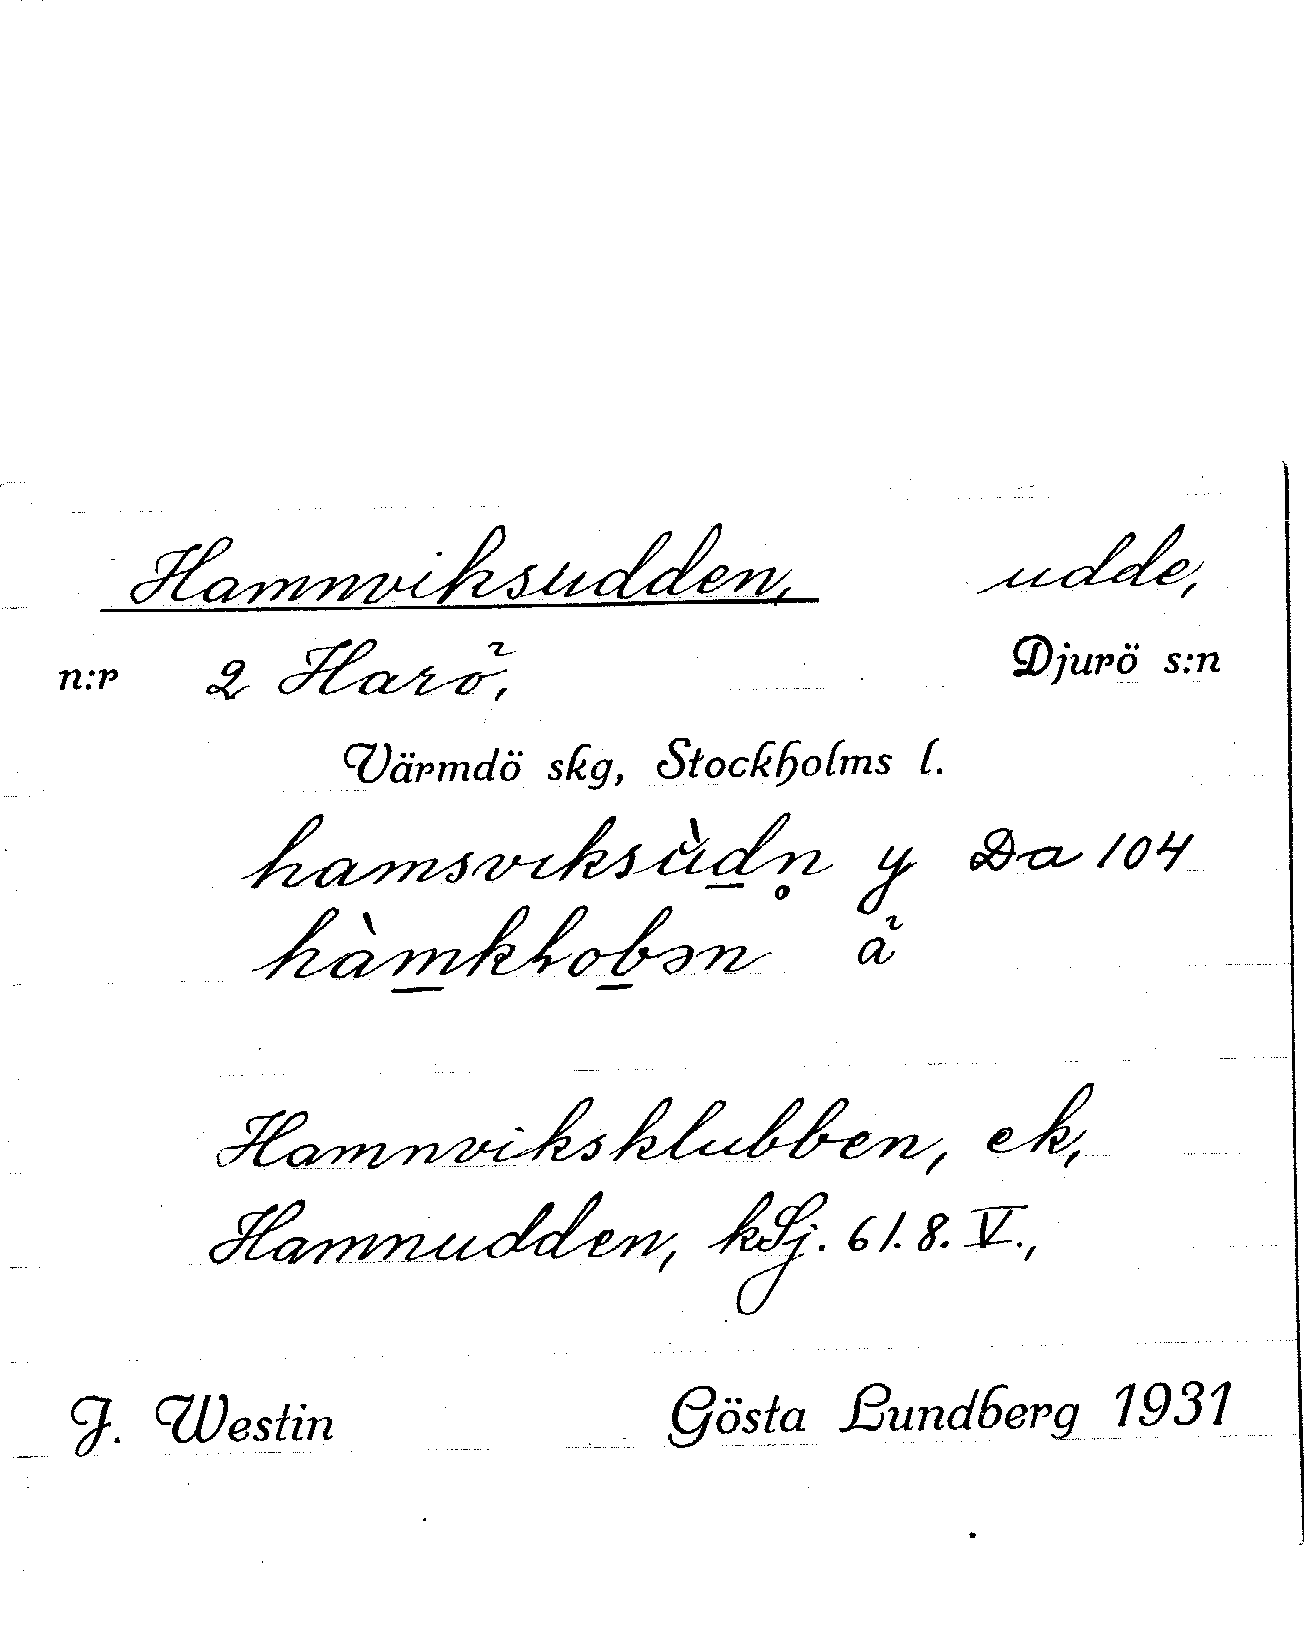 Hamnviksudden, udde,
n:r 2 Harö, Djurö s:n
Värmdö skg, Stockholms l.
hamsvıksùdn̥ y Da 104
hàmkḷobən ã
Hamnviksklubben, ek,
Hamnudden, kSj. 61. 8. V.,
J. Westin Gösta Lundberg 1931